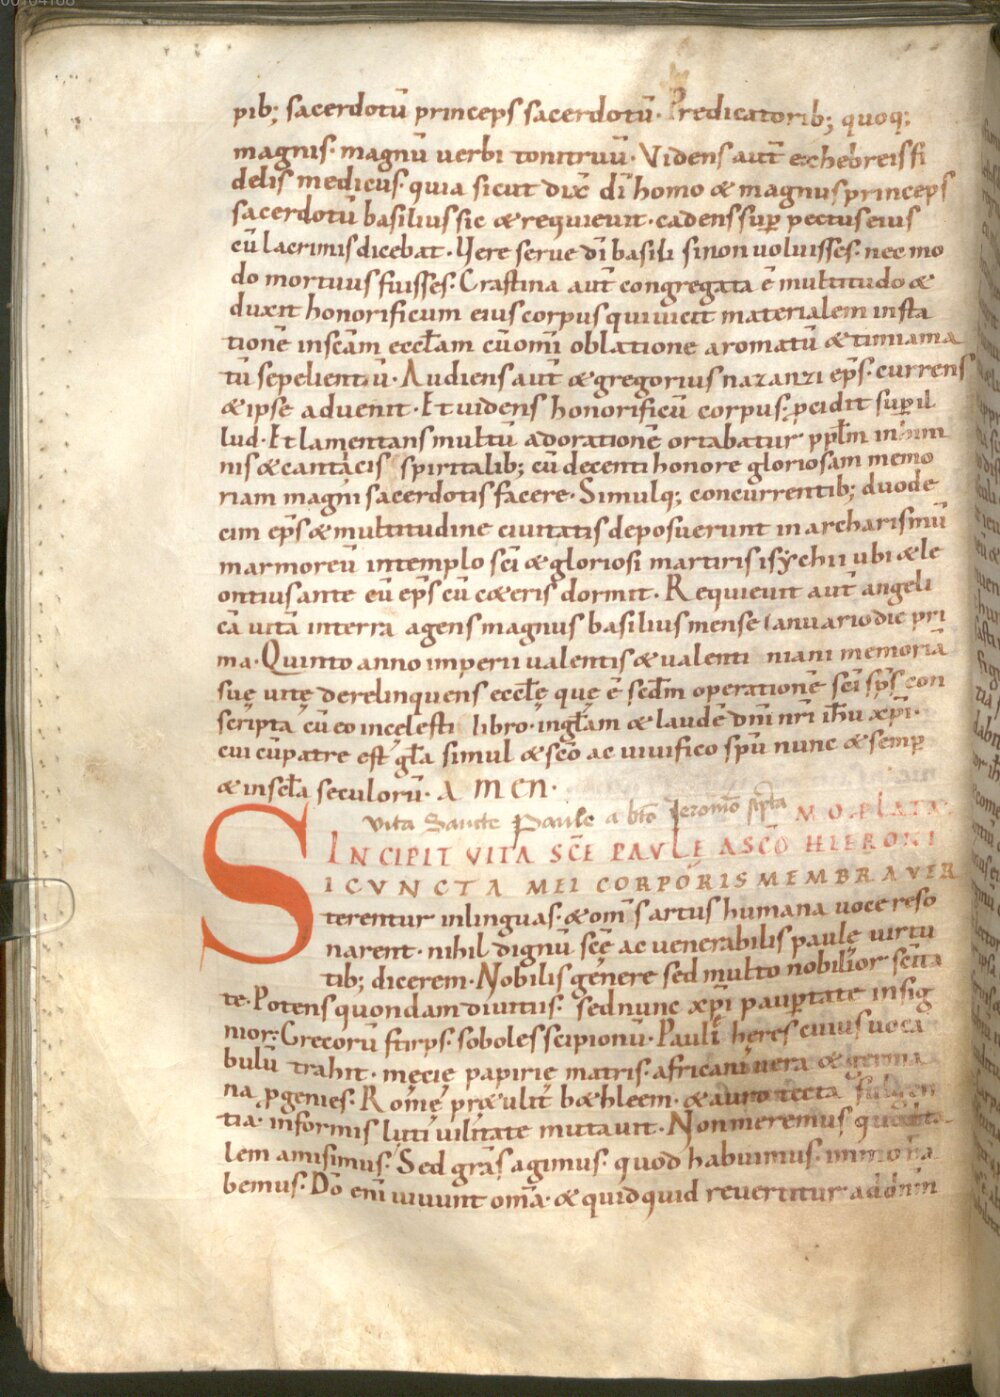 pib; sacerdotū princeps sacerdotū. Predicatorib; quoq;
magnis. magnū uerbi tonitruū. Videns aut̄ ex hebreis fi
delis medicus. quia sicut dix̄ dī homo & magnus princeps
sacerdotū basilius sic & requieuit. cadens sup̄ pectus eius
cū lacrimis dicebat. Vere serue dī basili si non uoluisses. nec mo
do mortuus fuisses. Crastina aut̄ congregata ē multitudo &
duxit honorificum eius corpus qui uicit materialem insta
tionē in sc̄am eccl̄am cū om̄i oblatione aromatū & timiama
tū sepelient ū. Audiens aut̄ & gregorius nazanzi ep̄s. currens
& ipse aduenit. Et uidens honorificū corpus. p̄cidit sup̄ il
lud. Et lamentans multū adorationē ortabatur ppl̄m in him
nis & canticis spiritalib; cū decenti honore gloriosam memo
riam magni sacerdotis facere. Simulq; concurrentib; duode
cim ep̄s & multitudine ciuitatis deposuerunt in archarismū
marmoreū in templo sc̄i & gloriosi martiris isychii ubi & le
ontius ante eū ep̄s cū c&eris dormit. Requieuit aut̄ angeli
cā uitā in terra agens magnus basilius mense ianuario die pri
ma. Quinto anno imperii ualentis & valenti niani memoriā
suę uitę derelinquens eccl̄ę quę ē scd̄m operationē sc̄i sp̄s con
scripta cū eo in celesti libro. in gl̄am & laudē dn̄i nr̄i ih̄u xp̄i.
cui cū patre est gl̄a simul & sc̄o ac uiuifico sp̄u nunc & semp̄
& in sec̄la seculorū. AMEN.
vita Sancte Paule a bt̄o Jeronimo sc̄pta
MO PLATA.
INCIPIT VITA SC̄E PAVLE A SC̄O HIERONI
SI CVNCTA MEI CORPORIS MEMBRA VER
terentur in linguas. & om̄s artus humana uoce reso
narent. nihil dignū sc̄ę ac uenerabilis paulę uirtu
tib; dicerem. Nobilis genere sed multo nobilior sc̄ita
te. Potens quondam diuitiis. sed nunc xp̄i paup̄tate insig
nior. Grecorū stirps. soboles scipionū. Pauli heres cuius uoca
bulū trahit. mecię papirię matris. africani uera & germa
na p̄genies. Romę prętulit b&hleem. & auro tecta fulgen
tia. informis luti uilitate mutauit. Non meremus quod ta
lem amisimus. Sed grās agimus. quod habuimus. immo ha
bemus. Dō eni uiuunt om̄a. & quidquid reuertitur ad dn̄m